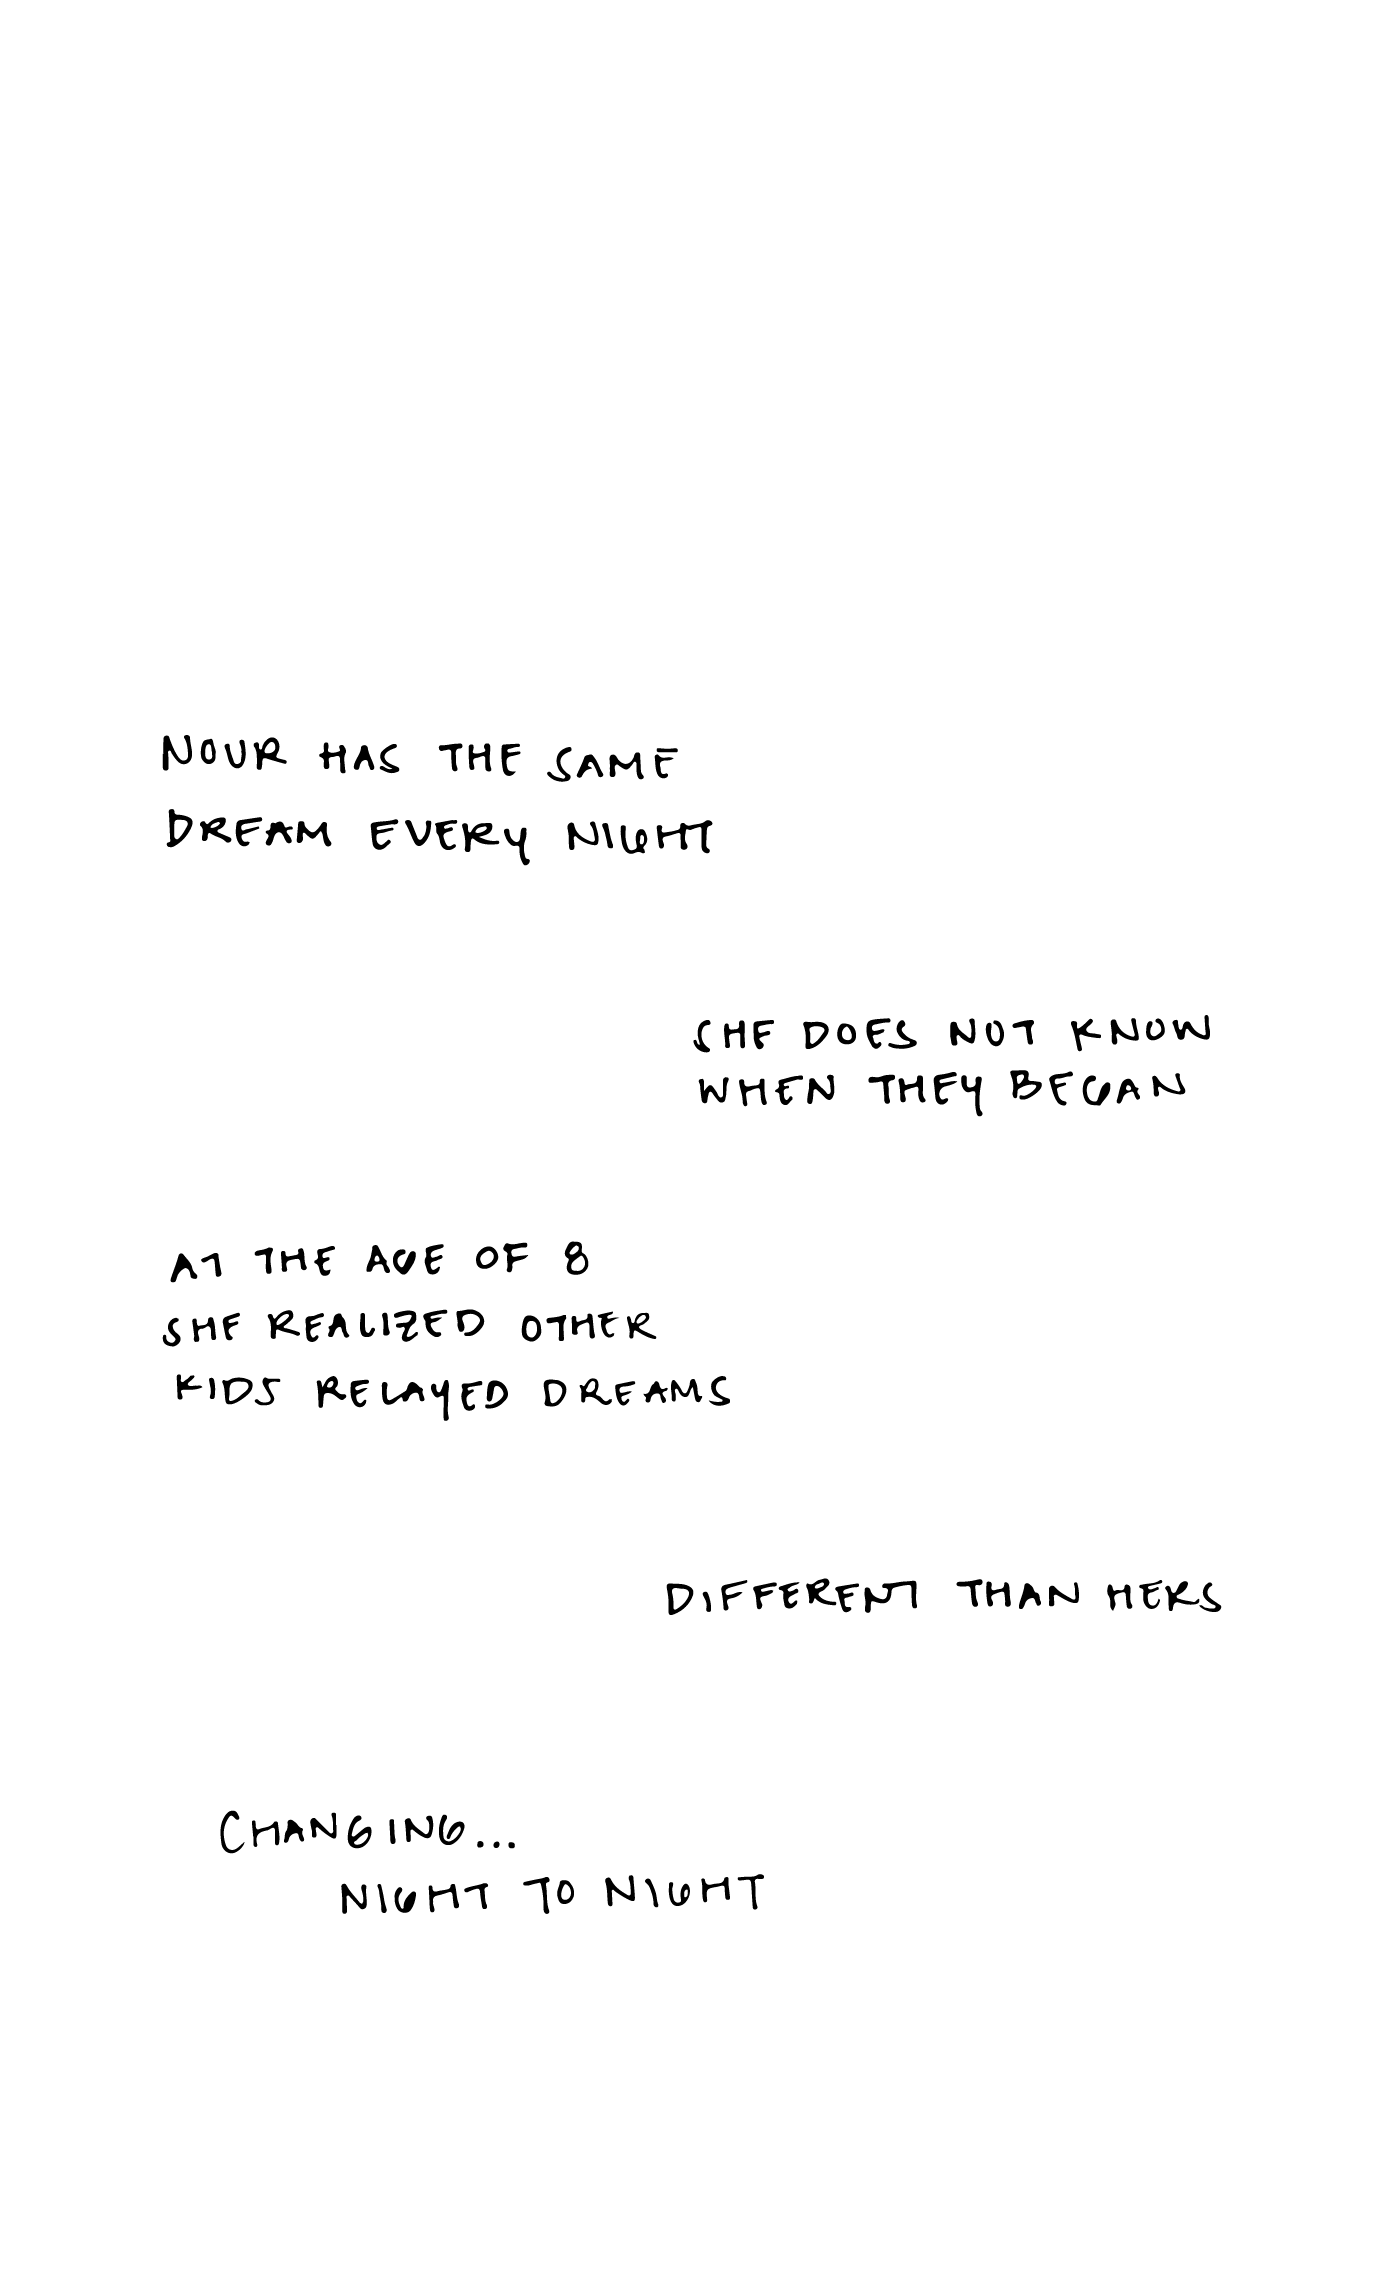 NOUR HAS THE SAME
DREAM EVERY NIGHT
SHE DOES NOT KNOW
WHEN THEY BEGAN
AT THE AGE OF 8
SHE REALIZED OTHER
KIDS RELAYED DREAMS
DIFFERENT THAN HERS
CHANGING...
NIGHT TO NIGHT